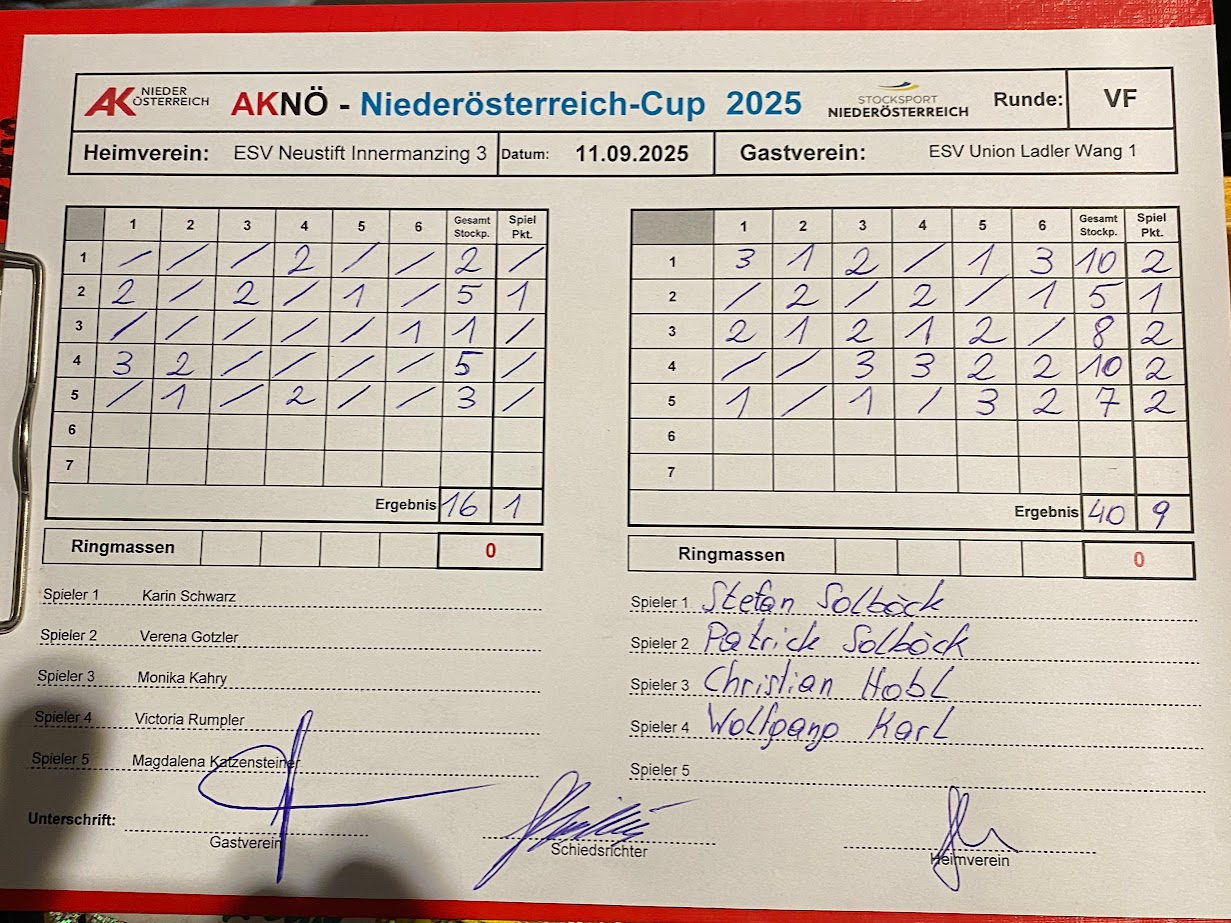 AK NIEDER ÖSTERREICH AKNÖ - Niederösterreich-Cup 2025 STOCKSPORT NIEDERÖSTERREICH Runde: VF
Heimverein: ESV Neustift Innermanzing 3 Datum: 11.09.2025 Gastverein: ESV Union Ladler Wang 1
1 2 3 4 5 6 Gesamt Stockp. Spiel Pkt.
1 / / / 2 / / 2 /
2 2 / 2 / 1 / 5 1
3 / / / / / 1 1 /
4 3 2 / / / / 5 /
5 / 1 / 2 / / 3 /
6
7
Ergebnis 16 1
Ringmassen 0
1 2 3 4 5 6 Gesamt Stockp. Spiel Pkt.
1 3 1 2 / 1 3 10 2
2 / 2 / 2 / 1 5 1
3 2 1 2 1 2 / 8 2
4 / / 3 3 2 2 10 2
5 1 / 1 / 3 2 7 2
6
7
Ergebnis 40 9
Ringmassen 0
Spieler 1 Karin Schwarz
Spieler 2 Verena Gotzler
Spieler 3 Monika Kahry
Spieler 4 Victoria Rumpler
Spieler 5 Magdalena Katzensteiner
Spieler 1 Stefan Solböck
Spieler 2 Patrick Solböck
Spieler 3 Christian Hobl
Spieler 4 Wolfgang Karl
Spieler 5
Unterschrift:
Gastverein Schiedsrichter Heimverein